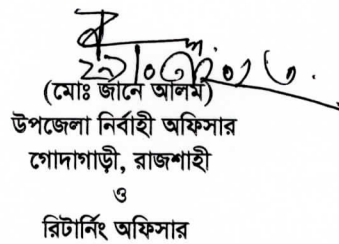 (মোঃ জানে আলম)
উপজেলা নির্বাহী অফিসার
গোদাগাড়ী, রাজশাহী
ও
রিটার্নিং অফিসার